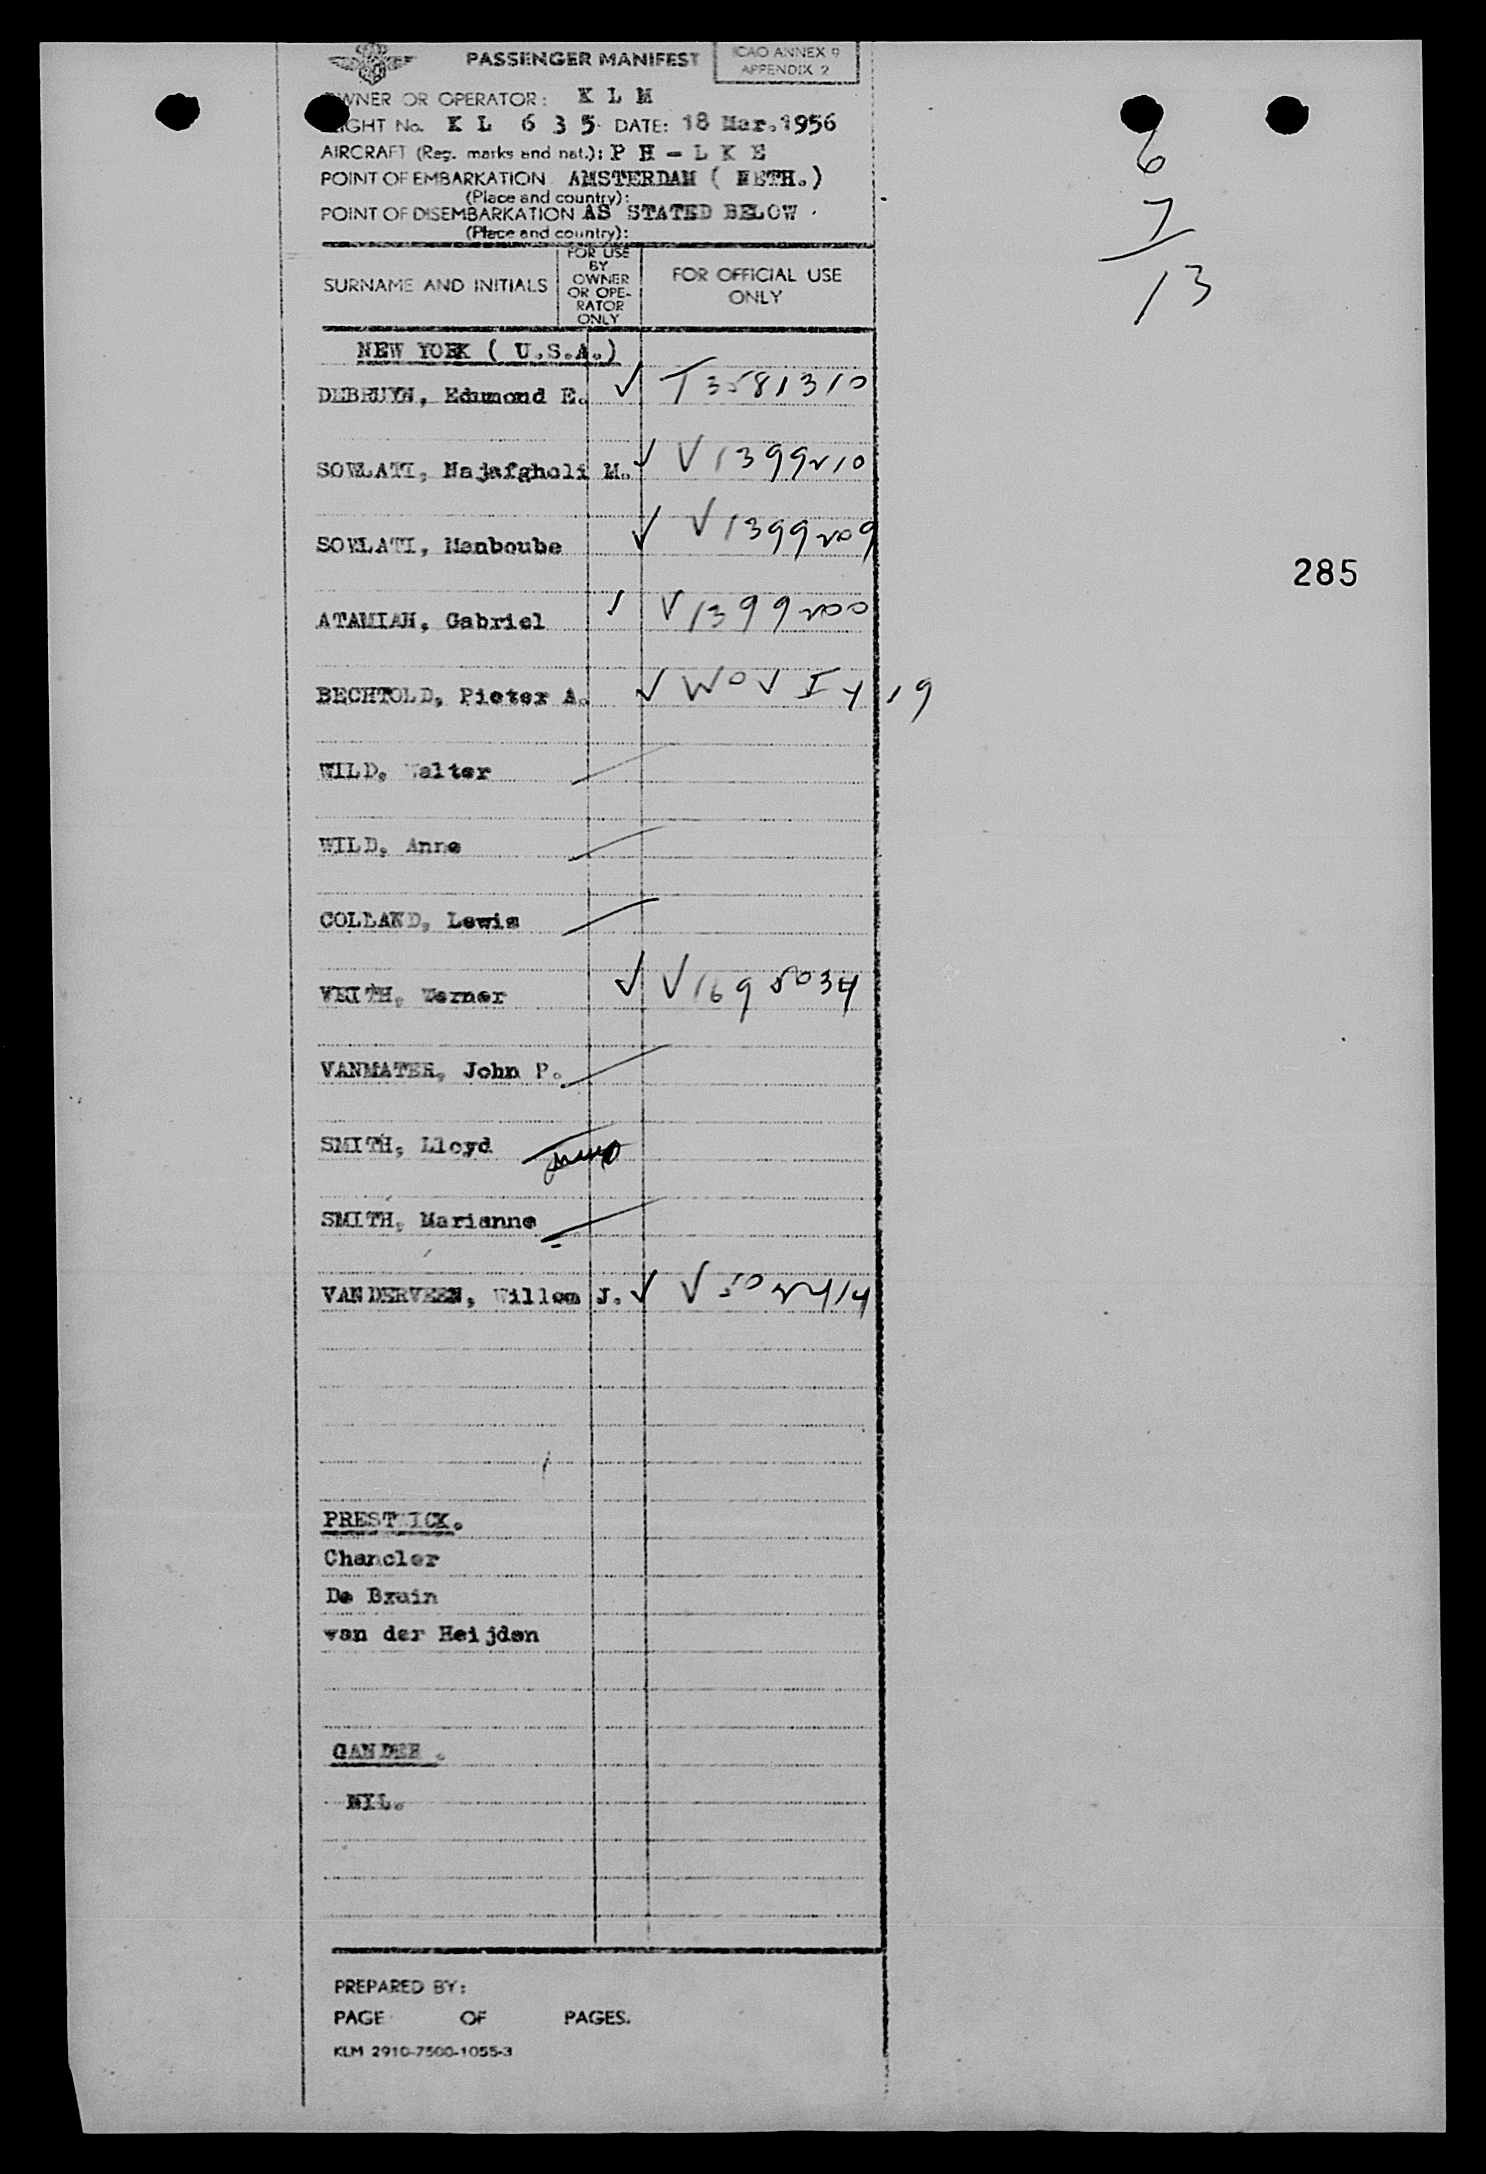 PASSENGER MANIFEST
ICAO ANNEX 9
APPENDIX 2
OWNER OR OPERATOR: K L M
FLIGHT No. K L 6 3 5 DATE: 18 Mar. 1956
AIRCRAFT (Reg. marks and nat.): P H - L K E
POINT OF EMBARKATION AMSTERDAM ( NETH.)
(Place and country):
POINT OF DISEMBARKATION AS STATED BELOW.
(Place and country):
SURNAME AND INITIALS
FOR USE
BY
OWNER
OR OPE-
RATOR
ONLY
FOR OFFICIAL USE
ONLY
6
7
13
NEW YORK ( U.S.A.)
DEBRUYN, Edumond E. ✓ T3581310
SOWLATI, Najafgholi M. ✓ V1399210
SOWLATI, Manboube ✓ V1399209
ATAMIAN, Gabriel ✓ V1399200
285
BECHTOLD, Pieter A. ✓
WILD, Walter
WILD, Anne
COLLAND, Lewis
VEITH, Werner ✓ V1695034
VANMATER, John P.
SMITH, Lloyd
SMITH, Marianne
VANDERVEEN, Willem J. ✓
PRESTWICK.
Chancler
De Bruin
van der Heijden
GANDER .
NIL.
PREPARED BY:
PAGE OF PAGES.
KLM 2910-7500-1055-3